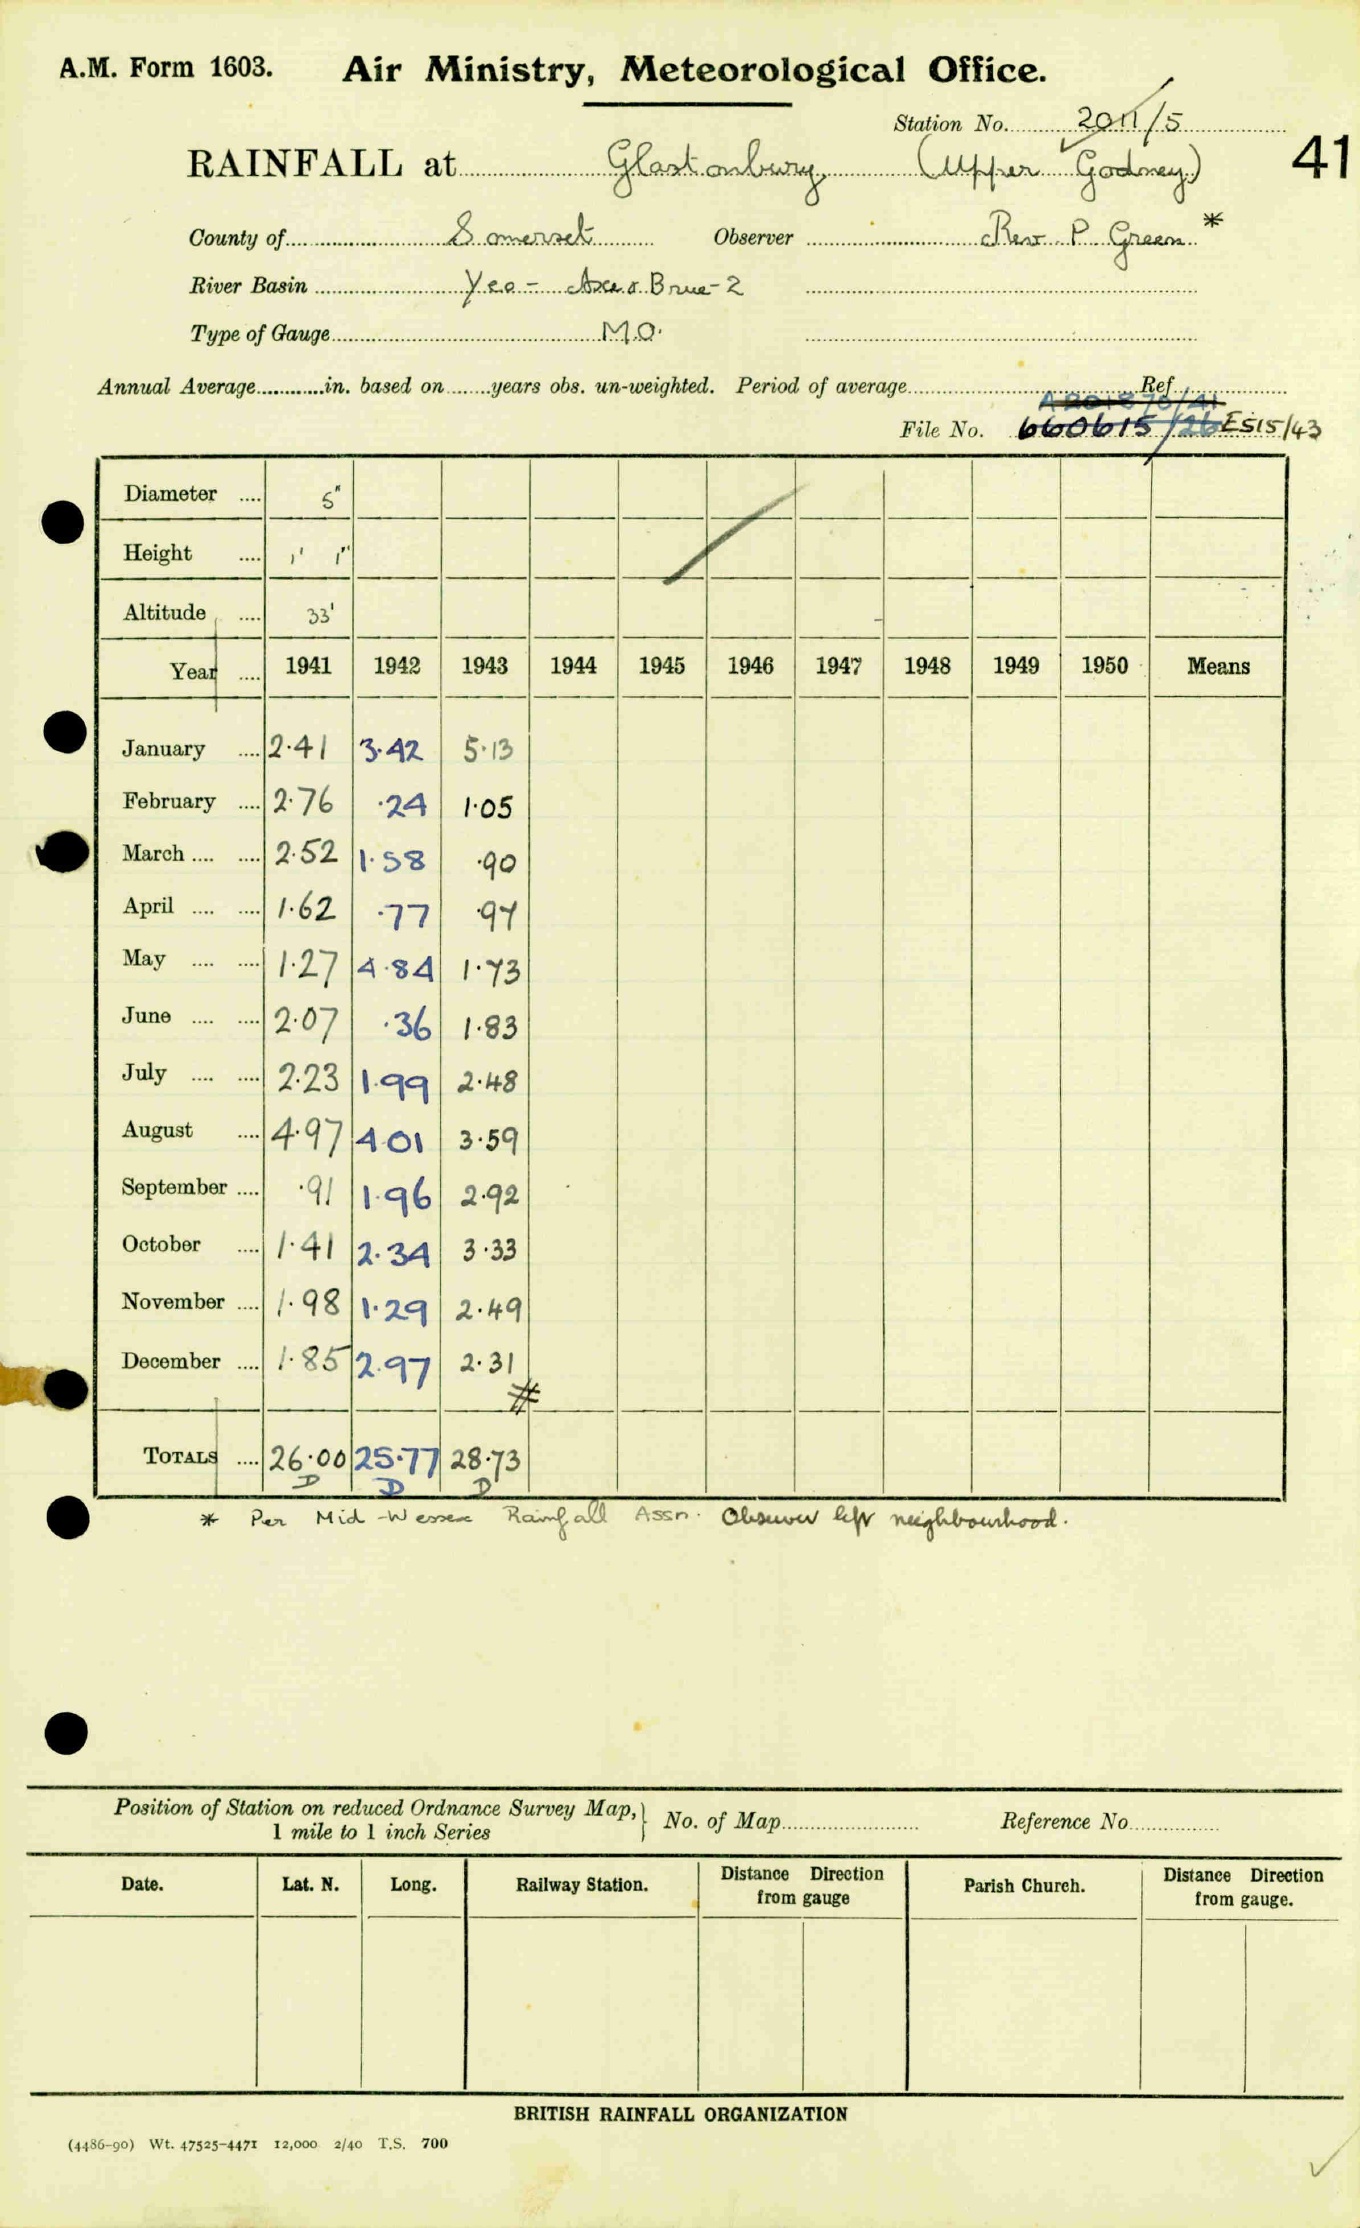 A.M. Form 1603. Air Ministry, Meteorological Office.
Station No. 2011/5
RAINFALL at Glastonbury (Upper Godney) 41
County of Somerset Observer Rev. P Green *
River Basin Yeo - Axe & Brue - 2
Type of Gauge M.O.
Annual Average in. based on years obs. un-weighted. Period of average Ref.
File No. 660615/26 ES15/43
Diameter 5"
Height 1' 1"
Altitude 33'
Year 1941 1942 1943 1944 1945 1946 1947 1948 1949 1950 Means
January 2.41 3.42 5.13
February 2.76 .24 1.05
March 2.52 1.58 .90
April 1.62 .77 .97
May 1.27 4.84 1.73
June 2.07 .36 1.83
July 2.23 1.99 2.48
August 4.97 4.01 3.59
September .91 1.96 2.92
October 1.41 2.34 3.33
November 1.98 1.29 2.49
December 1.85 2.97 2.31
#
TOTALS 26.00 25.77 28.73
D D D
* Per Mid-Wessex Rainfall Assn. Observer left neighbourhood.
Position of Station on reduced Ordnance Survey Map, 1 mile to 1 inch Series } No. of Map Reference No.
Date. Lat. N. Long. Railway Station. Distance Direction from gauge Parish Church. Distance Direction from gauge.
BRITISH RAINFALL ORGANIZATION
(4486-90) Wt. 47525-4471 12,000 2/40 T.S. 700